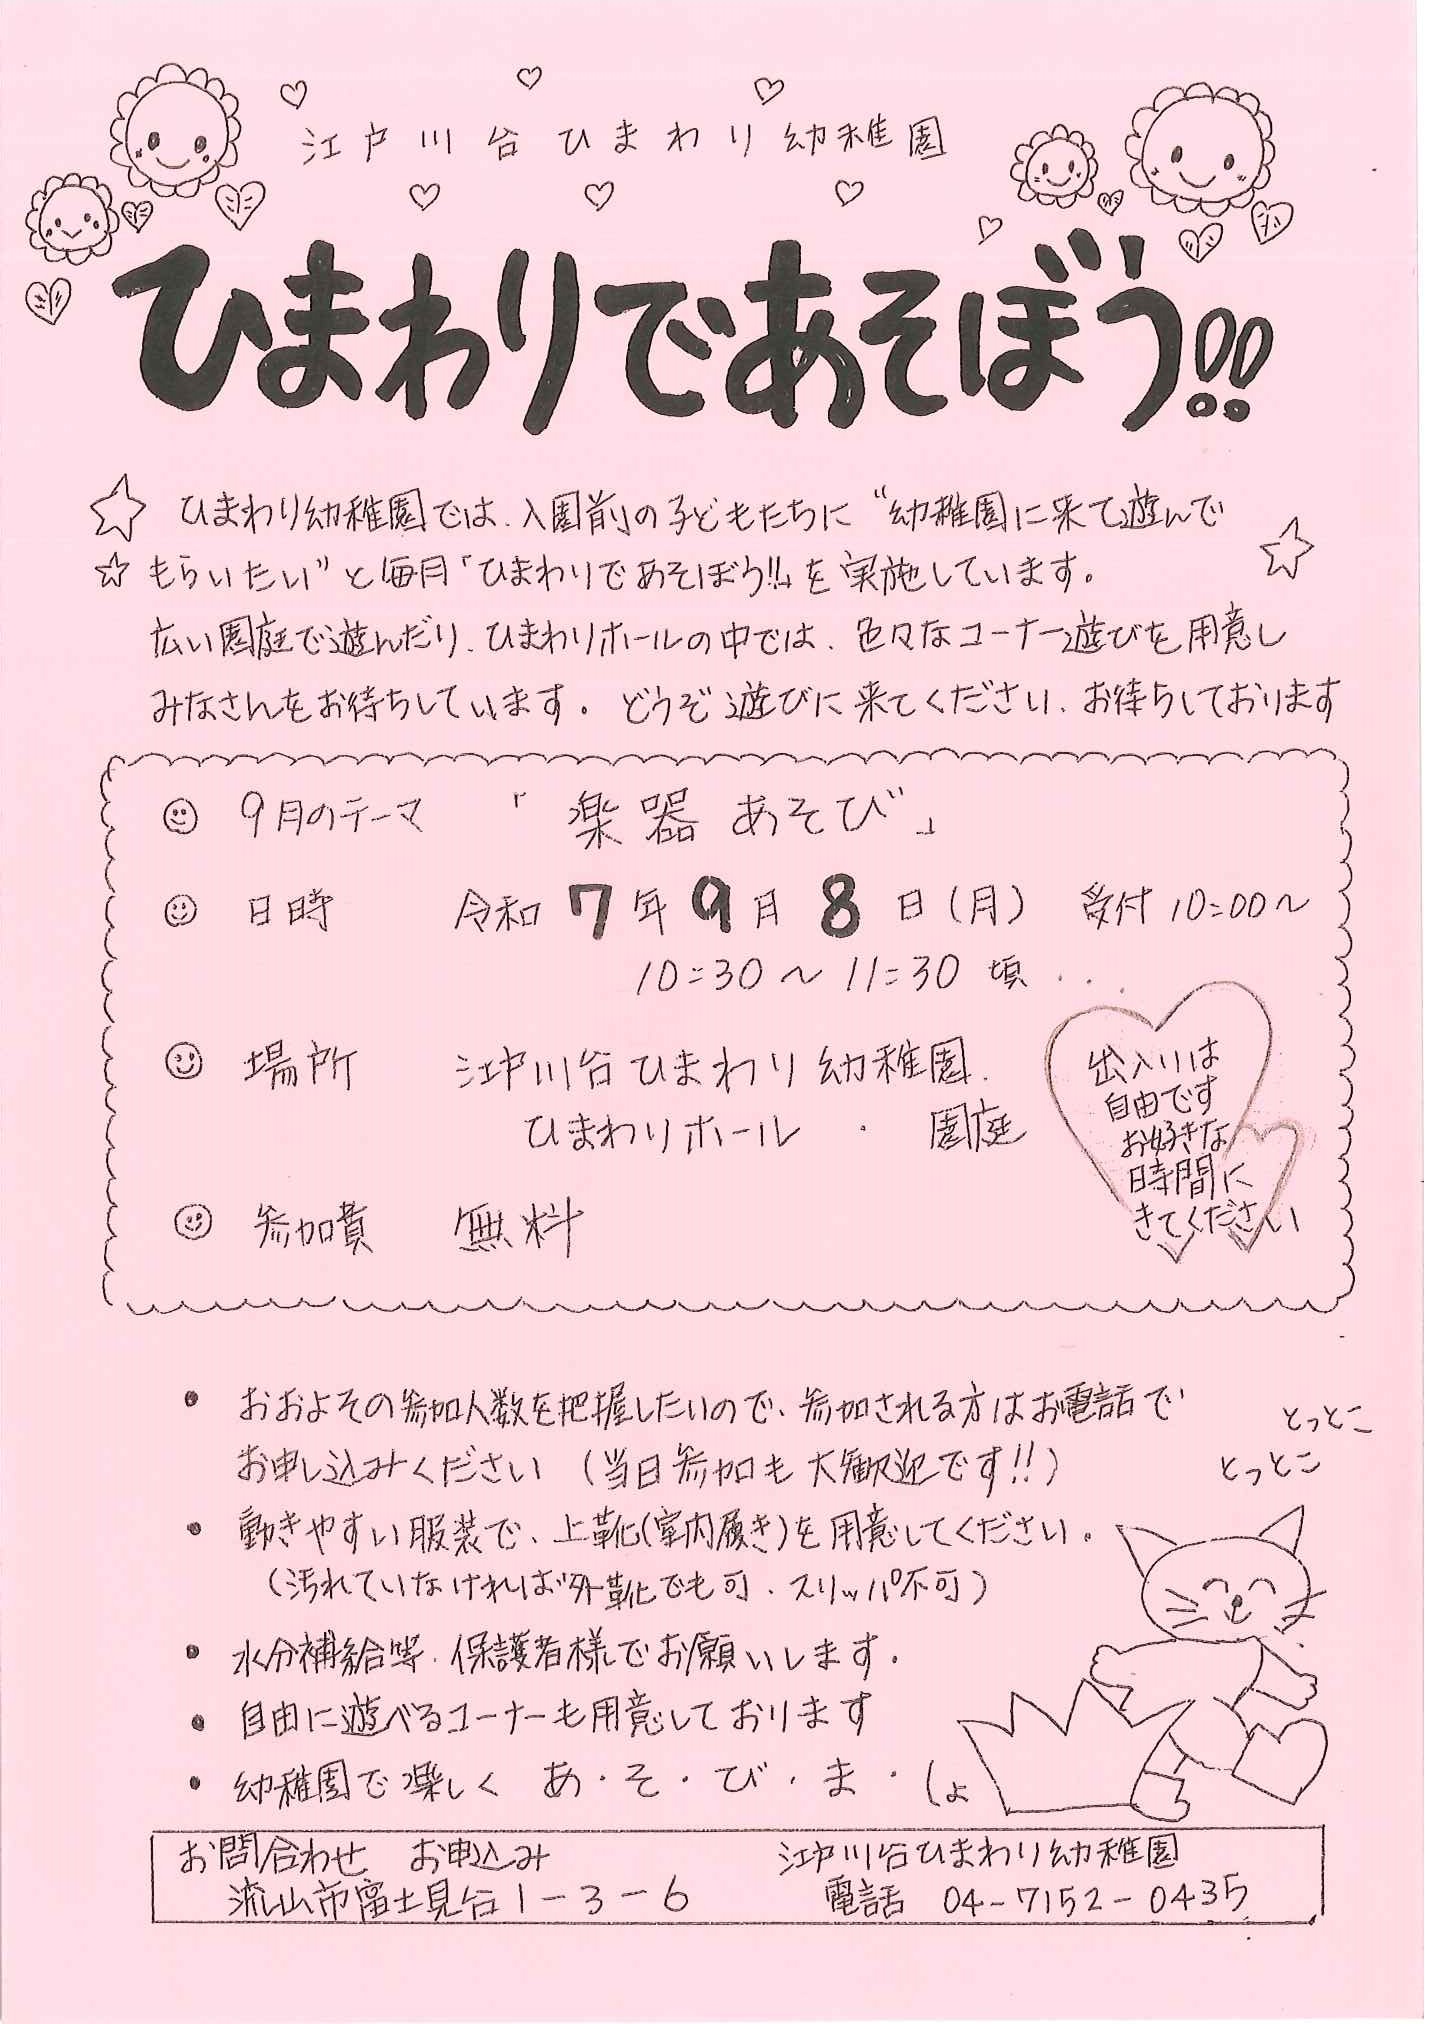 江戸川台ひまわり幼稚園
ひまわりであそぼう!!
ひまわり幼稚園では、入園前の子どもたちに“幼稚園に来て遊んで
もらいたい”と毎月「ひまわりであそぼう!!」を実施しています。
広い園庭で遊んだり、ひまわりホールの中では、色々なコーナー遊びを用意し
みなさんをお待ちしています。どうぞ遊びに来てください、お待ちしております
9月のテーマ 「楽器あそび」
日時 令和7年9月8日(月) 受付10:00〜
10:30〜11:30頃...
場所 江戸川台ひまわり幼稚園
ひまわりホール・園庭
出入りは
自由です
お好きな
時間に
きてください
参加費 無料
・おおよその参加人数を把握したいので、参加される方はお電話で
お申し込みください(当日参加も大歓迎です!!)
とっとこ
とっとこ
・動きやすい服装で、上靴(室内履き)を用意してください。
(汚れていなければ外靴でも可、スリッパ不可)
・水分補給等、保護者様でお願いします。
・自由に遊べるコーナーも用意しております
・幼稚園で楽しく あ・そ・び・ま・しょ
お問合わせ お申込み 江戸川台ひまわり幼稚園
流山市富士見台1-3-6 電話 04-7152-0435